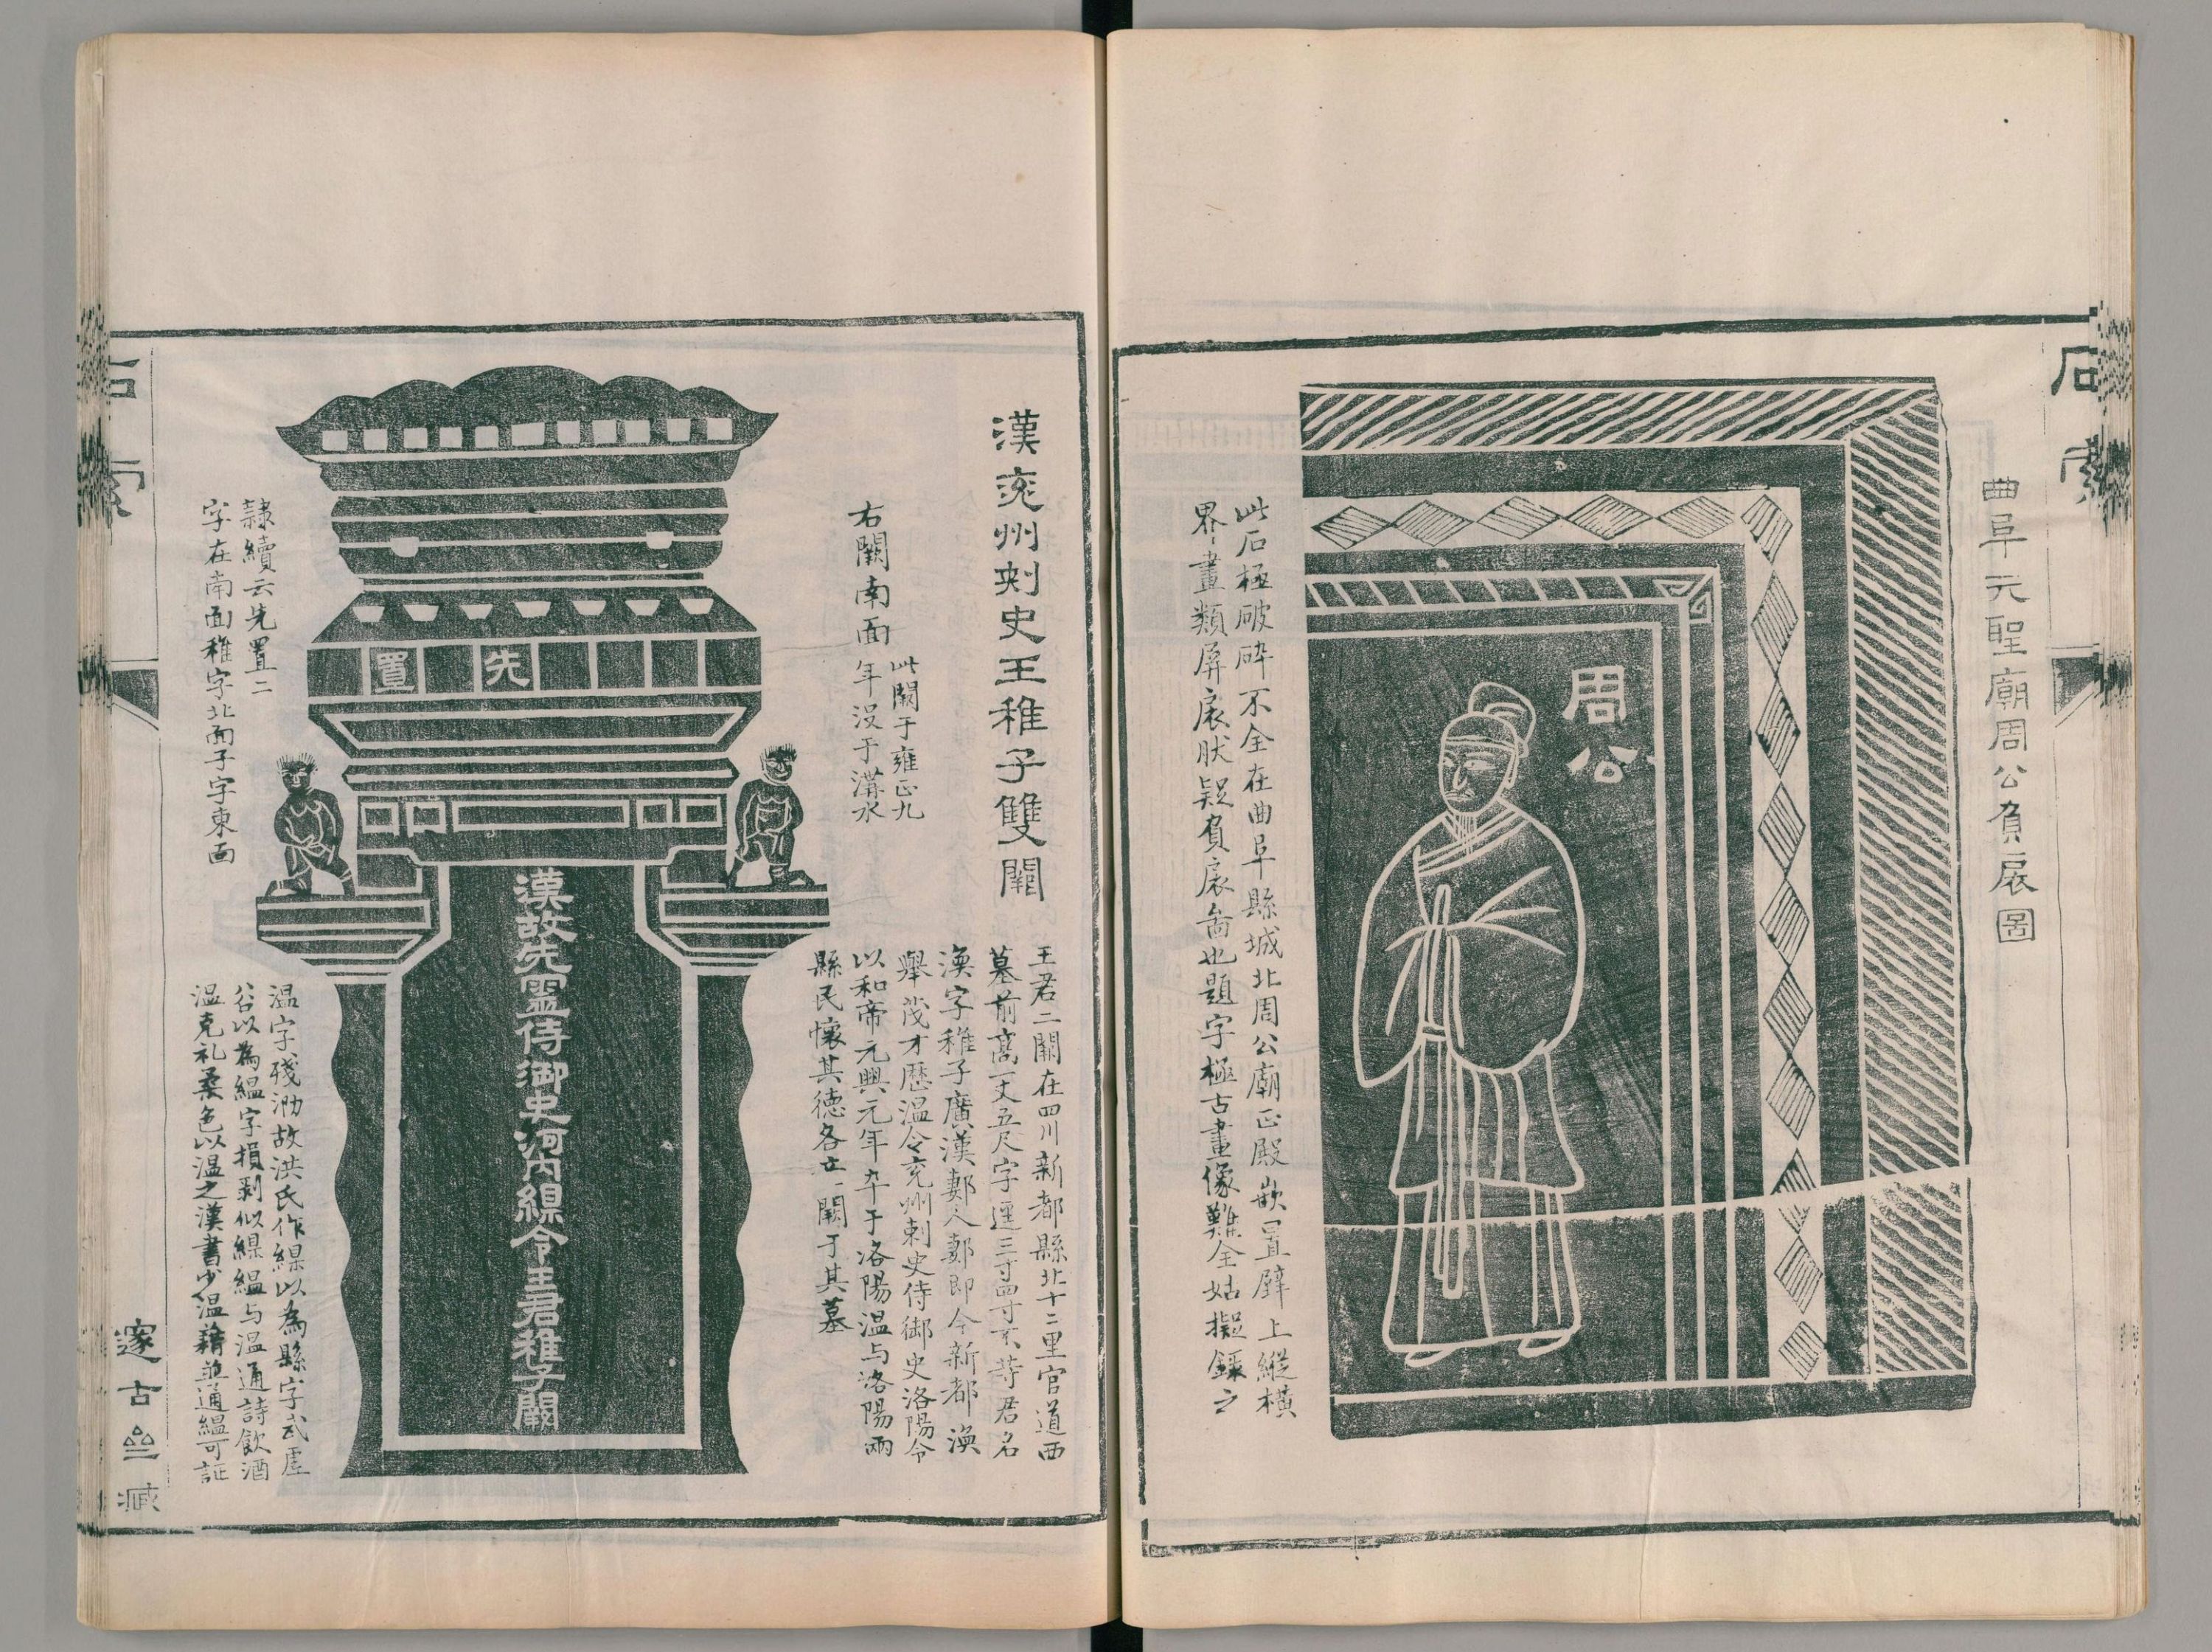 石索
曲阜元聖廟周公負扆圖
周公
此石極破碎不全在曲阜縣城北周公廟正殿嵌置壁上縱橫
界畫類屏扆狀疑負扆啚也題字極古畫像難全姑擬錄之
漢兖州刾史王稚子雙闕
王君二闕在四川新都縣北十二里官道西
墓前高一丈五尺字徑三寸四寸不等君名
渙字稚子廣漢郪人郪即今新都渙
舉茂才歷温令兖州刺史侍御史洛陽令
以和帝元興元年卒于洛陽温与洛陽兩
縣民懷其德各立一闕于其墓
右闕南面
此闕于雍正九
年没于溝水
先
置
漢故先靈侍御史河内緼令王君稚子闕
隸續云先置二
字在南面稚字北面子字東面
温字殘泐故洪氏作緼以為縣字武虛
谷以為緼字損剥似緼緼与温通詩飲酒
温克礼柔色以温之漢書少温藉並通緼可証
石索
邃古 臧